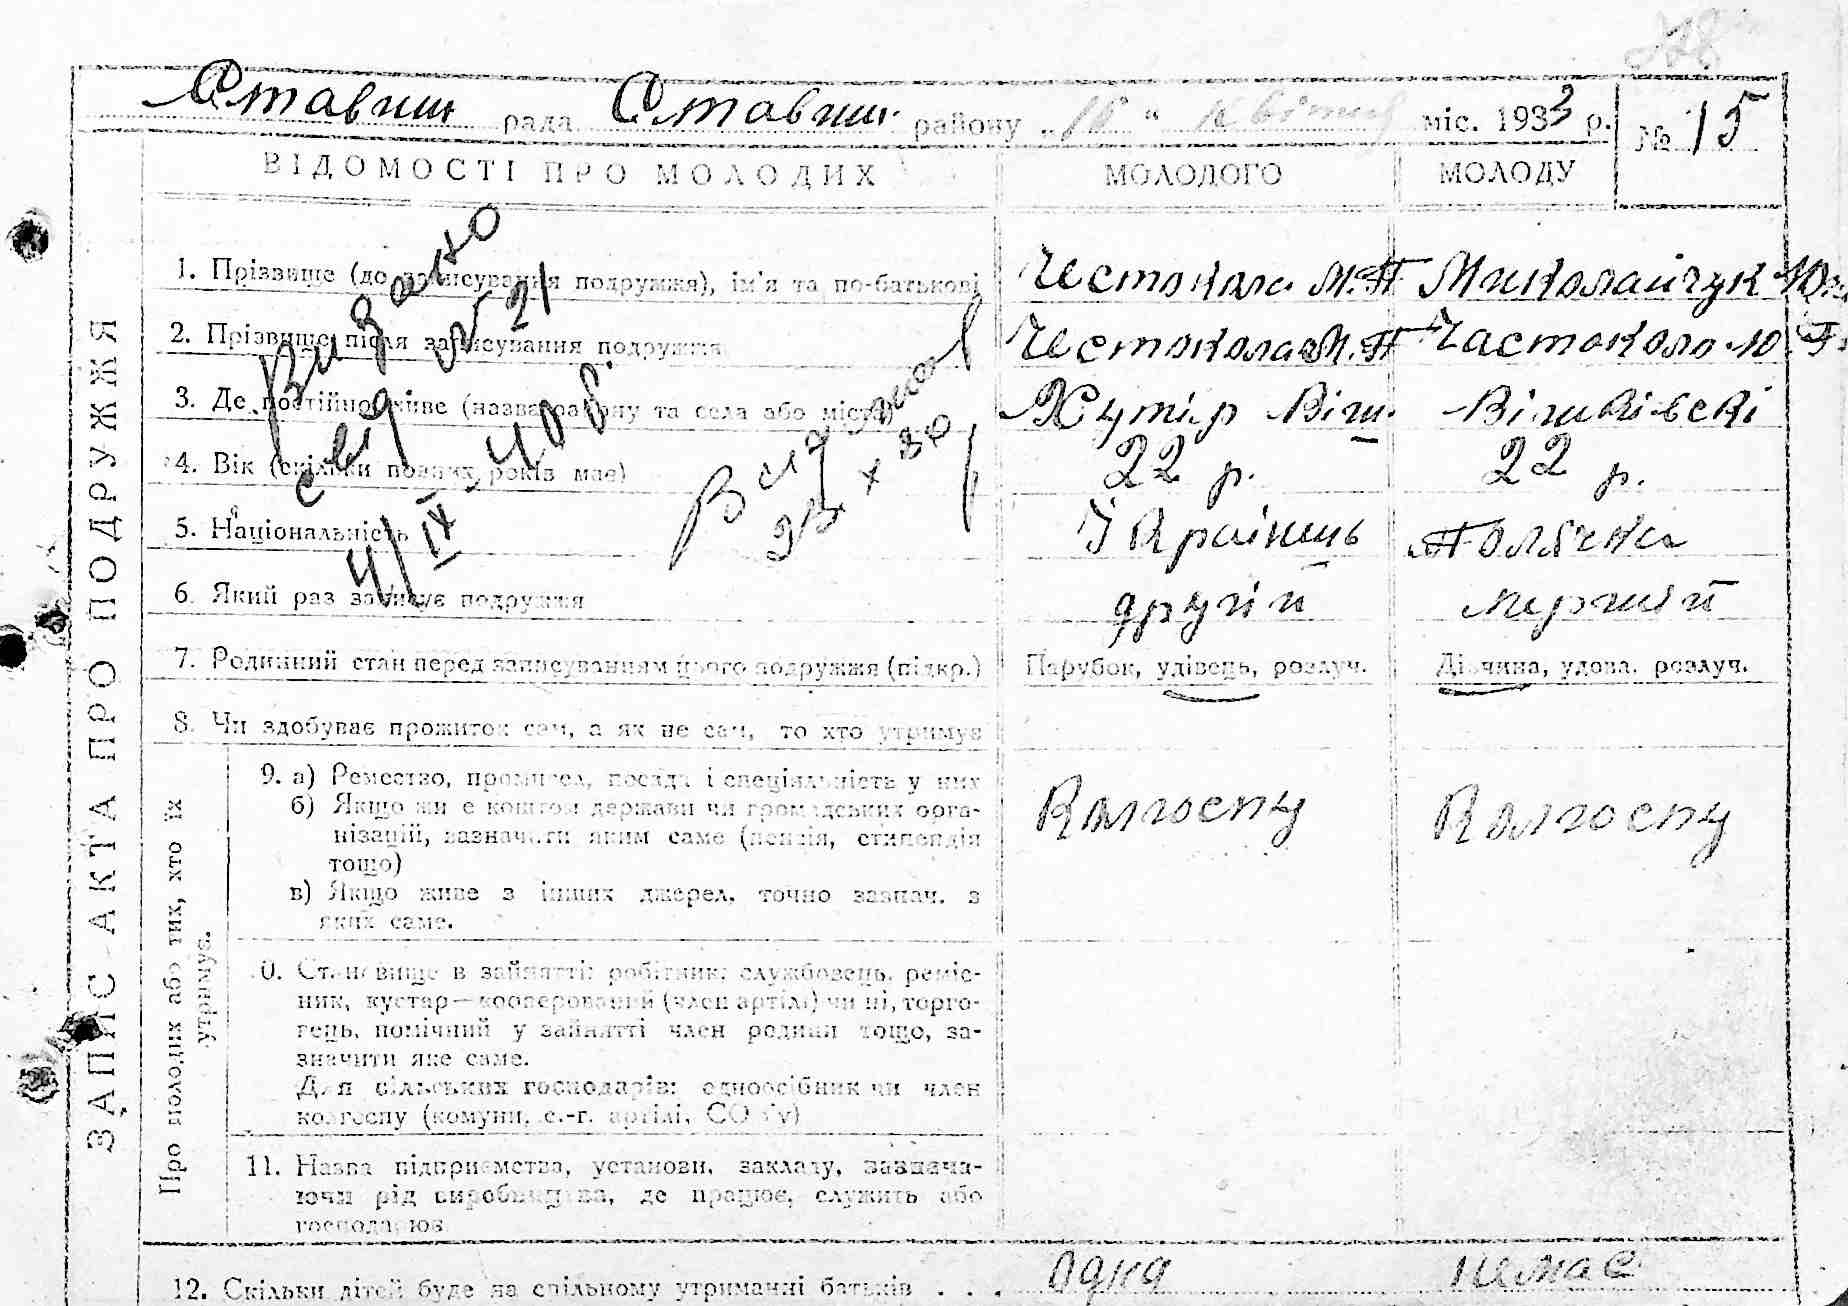 Ставищ рада Ставищ. району „16“ квітня міс. 1933 р. № 15
ВІДОМОСТІ ПРО МОЛОДИХ МОЛОДОГО МОЛОДУ
ЗАПИС АКТА ПРО ПОДРУЖЖЯ
1. Прізвище (до записування подружжя), ім'я та по-батькові Честокола М.П Миколайчук Ю
2. Прізвище після записування подружжя Честокола М.П Частоколо Ю
3. Де постійно живе (назва району та села або міста) Хутір Віш. Вішківскі
4. Вік (скільки повних років має) 22 р. 22 р.
5. Національність Україниць Полячка
6. Який раз записує подружжя другий перший
7. Родинний стан перед записуванням цього подружжя (підкр.) Парубок, удівець, розлуч. Дівчина, удова, розлуч.
8. Чи здобуває прожиток сам, а як не сам, то хто утримує
Видано
4/IX 40 р.
Про молодих або тих, хто їх
утримує.
9. а) Ремество, промисел, посада і спеціяльність у них
б) Якщо жив є коштом держави чи громадських орга-
нізацій, зазначити яким саме (пенсія, стипендія
тощо)
в) Якщо живе з інших джерел, точно зазнач. з
яких саме.
Колгоспу Колгоспу
0. Становище в зайнятті: робітник, службовець, реміс-
ник, кустар—кооперований (член артілі) чи ні, торго-
вець, помічний у зайнятті член родини тощо, за-
значити яке саме.
Для сільських господарів: одноосібник чи член
колгоспу (комуни, с.-г. артілі, СОЗ'у)
11. Назва підприємства, установи, закладу, зазнача-
ючи рід виробництва, де працює, служить або
господарює
12. Скільки дітей буде на спільному утриманні батьків . . . одна немає